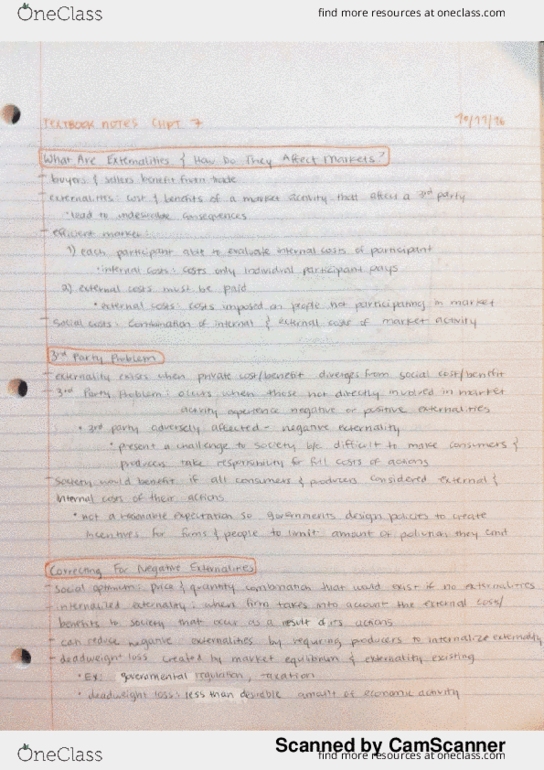 OneClass
find more resources at oneclass.com
TEXTBOOK NOTES CHPT 7
What Are Externalities & How Do They Affect Markets?
- buyers & sellers benefit from trade
- externalities: cost & benefits of a market activity that affect a 3rd party
• lead to undesirable consequences
- efficient market:
1) each participant able to evaluate internal costs of participant
• internal costs: costs only individual participant pays
2) external costs must be paid
• external costs: costs imposed on people not participating in market
- social costs: combination of internal & external costs of market activity
3rd Party Problem
- externality exists when private cost/benefit diverges from social cost/benefit
- 3rd Party Problem: occurs when those not directly involved in market
activity experience negative or positive externalities
• 3rd party adversely affected = negative externality
• present a challenge to society b/c difficult to make consumers &
producers take responsibility for full costs of actions
- society would benefit if all consumers & producers considered external &
internal costs of their actions
• not a reasonable expectation so governments design policies to create
incentives for firms & people to limit amount of pollution they emit
Correcting For Negative Externalities
- social optimum: price & quantity combination that would exist if no externalities
- internalized externality: when firm takes into account the external costs/
benefits to society that occur as a result of its actions
- can reduce negative externalities by requiring producers to internalize externality
- deadweight loss created by market equilibrium & externality existing
• Ex: governmental regulation, taxation
• deadweight loss: less than desirable amount of economic activity
Scanned by CamScanner
OneClass
find more resources at oneclass.com